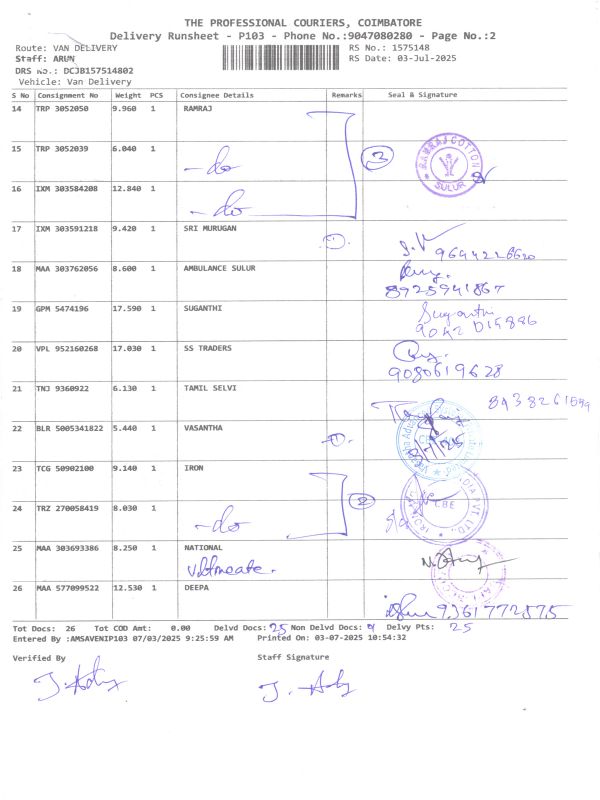 THE PROFESSIONAL COURIERS, COIMBATORE
Delivery Runsheet - P103 - Phone No.:9047080280 - Page No.:2
Route: VAN DELIVERY
RS No.: 1575148
Staff: ARUN
RS Date: 03-Jul-2025
DRS No.: DCJB157514802
Vehicle: Van Delivery
S No Consignment No Weight PCS Consignee Details Remarks Seal & Signature
14 TRP 3052050 9.960 1 RAMRAJ
15 TRP 3052039 6.040 1
-do 3 RAMRAJ COTTON SULUR
16 IXM 303584208 12.840 1
-do
17 IXM 303591218 9.420 1 SRI MURUGAN
1
18 MAA 303762056 8.600 1 AMBULANCE SULUR
8925941867
19 GPM 5474196 17.590 1 SUGANTHI
Suganthi
20 VPL 952160268 17.030 1 SS TRADERS
9080619628
21 TNJ 9360922 6.130 1 TAMIL SELVI
22 BLR 5005341822 5.440 1 VASANTHA
1
23 TCG 50902100 9.140 1 IRON
2
24 TRZ 270058419 8.030 1
-do
25 MAA 303693386 8.250 1 NATIONAL
26 MAA 577099522 12.530 1 DEEPA
9361772575
Tot Docs: 26 Tot COD Amt: 0.00 Delvd Docs: 25 Non Delvd Docs: Delvy Pts: 25
Entered By :AMSAVENIP103 07/03/2025 9:25:59 AM Printed On: 03-07-2025 10:54:32
Verified By Staff Signature